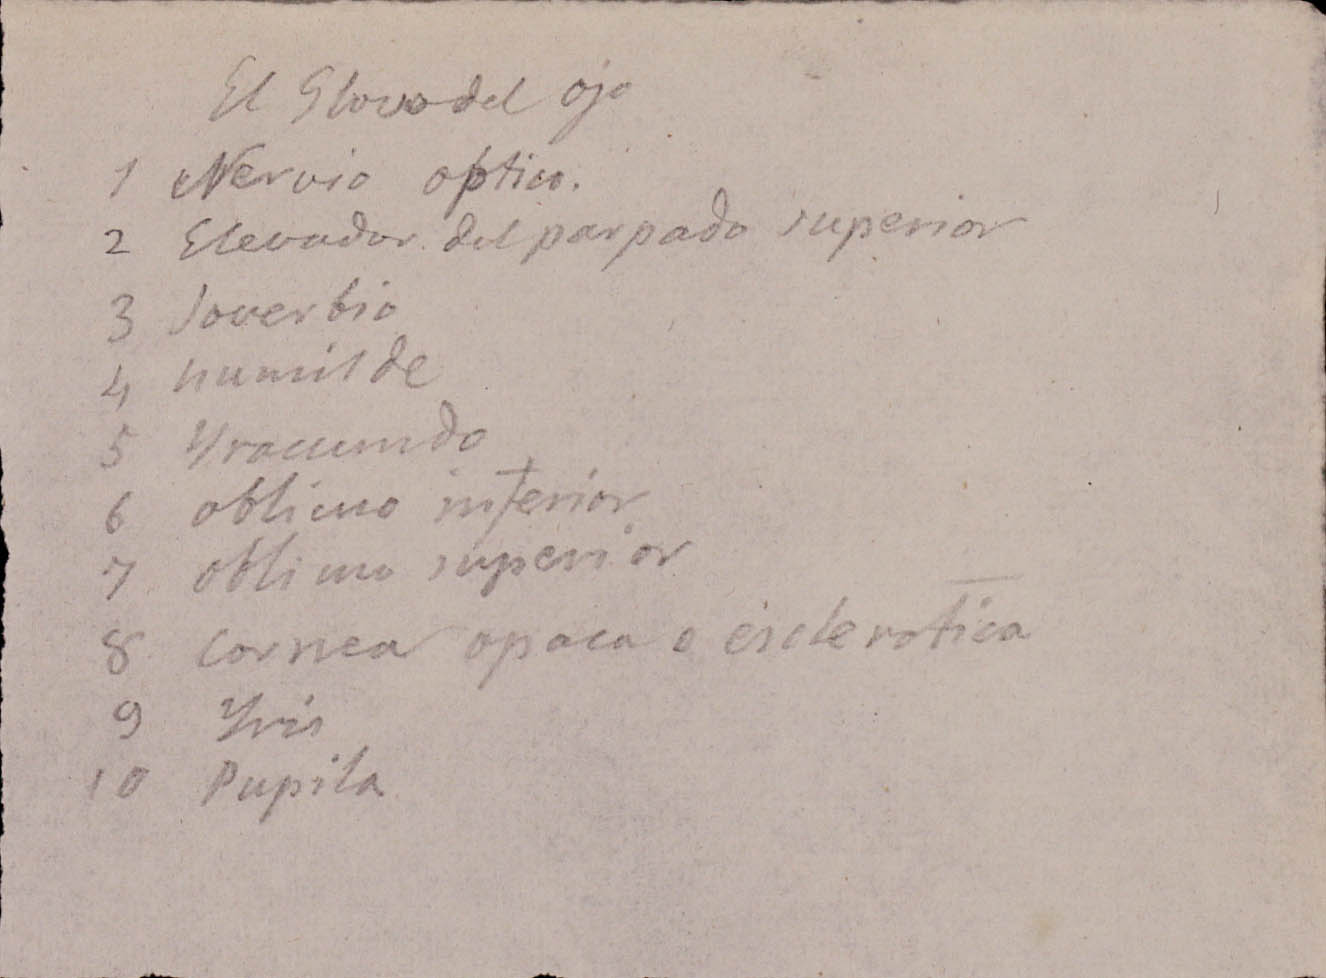 El Glovo del ojo
1 Nervio optico.
2 Elevador del parpado superior
3 soverbio
4 humilde
5 Yracundo
6 oblicuo inferior
7 oblicuo superior
8 cornea opaca o esclerotica
9 Yris
10 Pupila